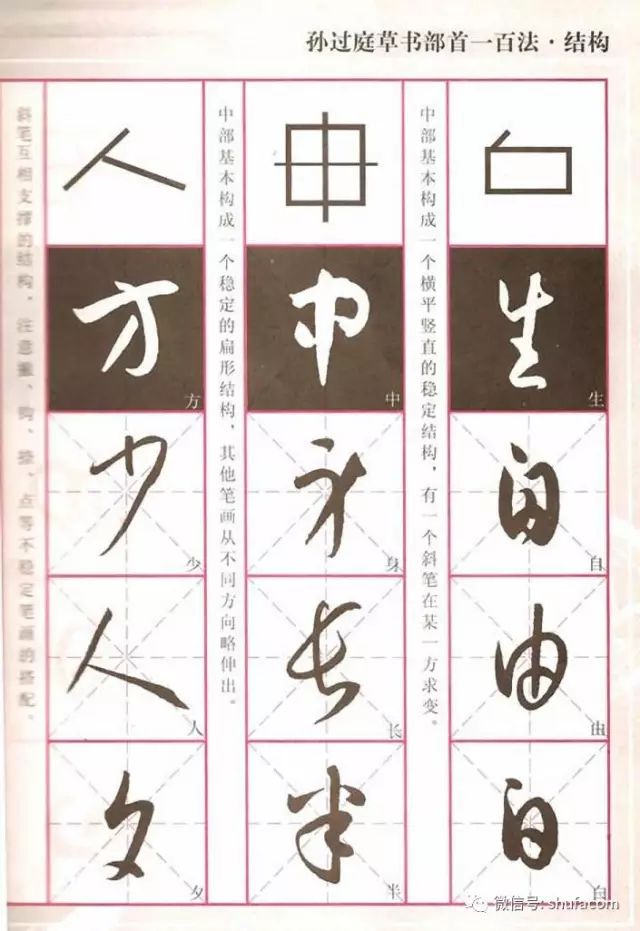 孙过庭草书部首一百法·结构
生
生
自
自
由
由
白
白
中部基本构成一个横平竖直的稳定结构，有一个斜笔在某一方求变。
中
中
身
身
长
长
半
半
中部基本构成一个稳定的扁形结构，其他笔画从不同方向略伸出。
方
方
少
少
人
人
夕
夕
斜笔互相支撑的结构，注意撇、钩、捺、点等不稳定笔画的搭配。
微信号: shufacom